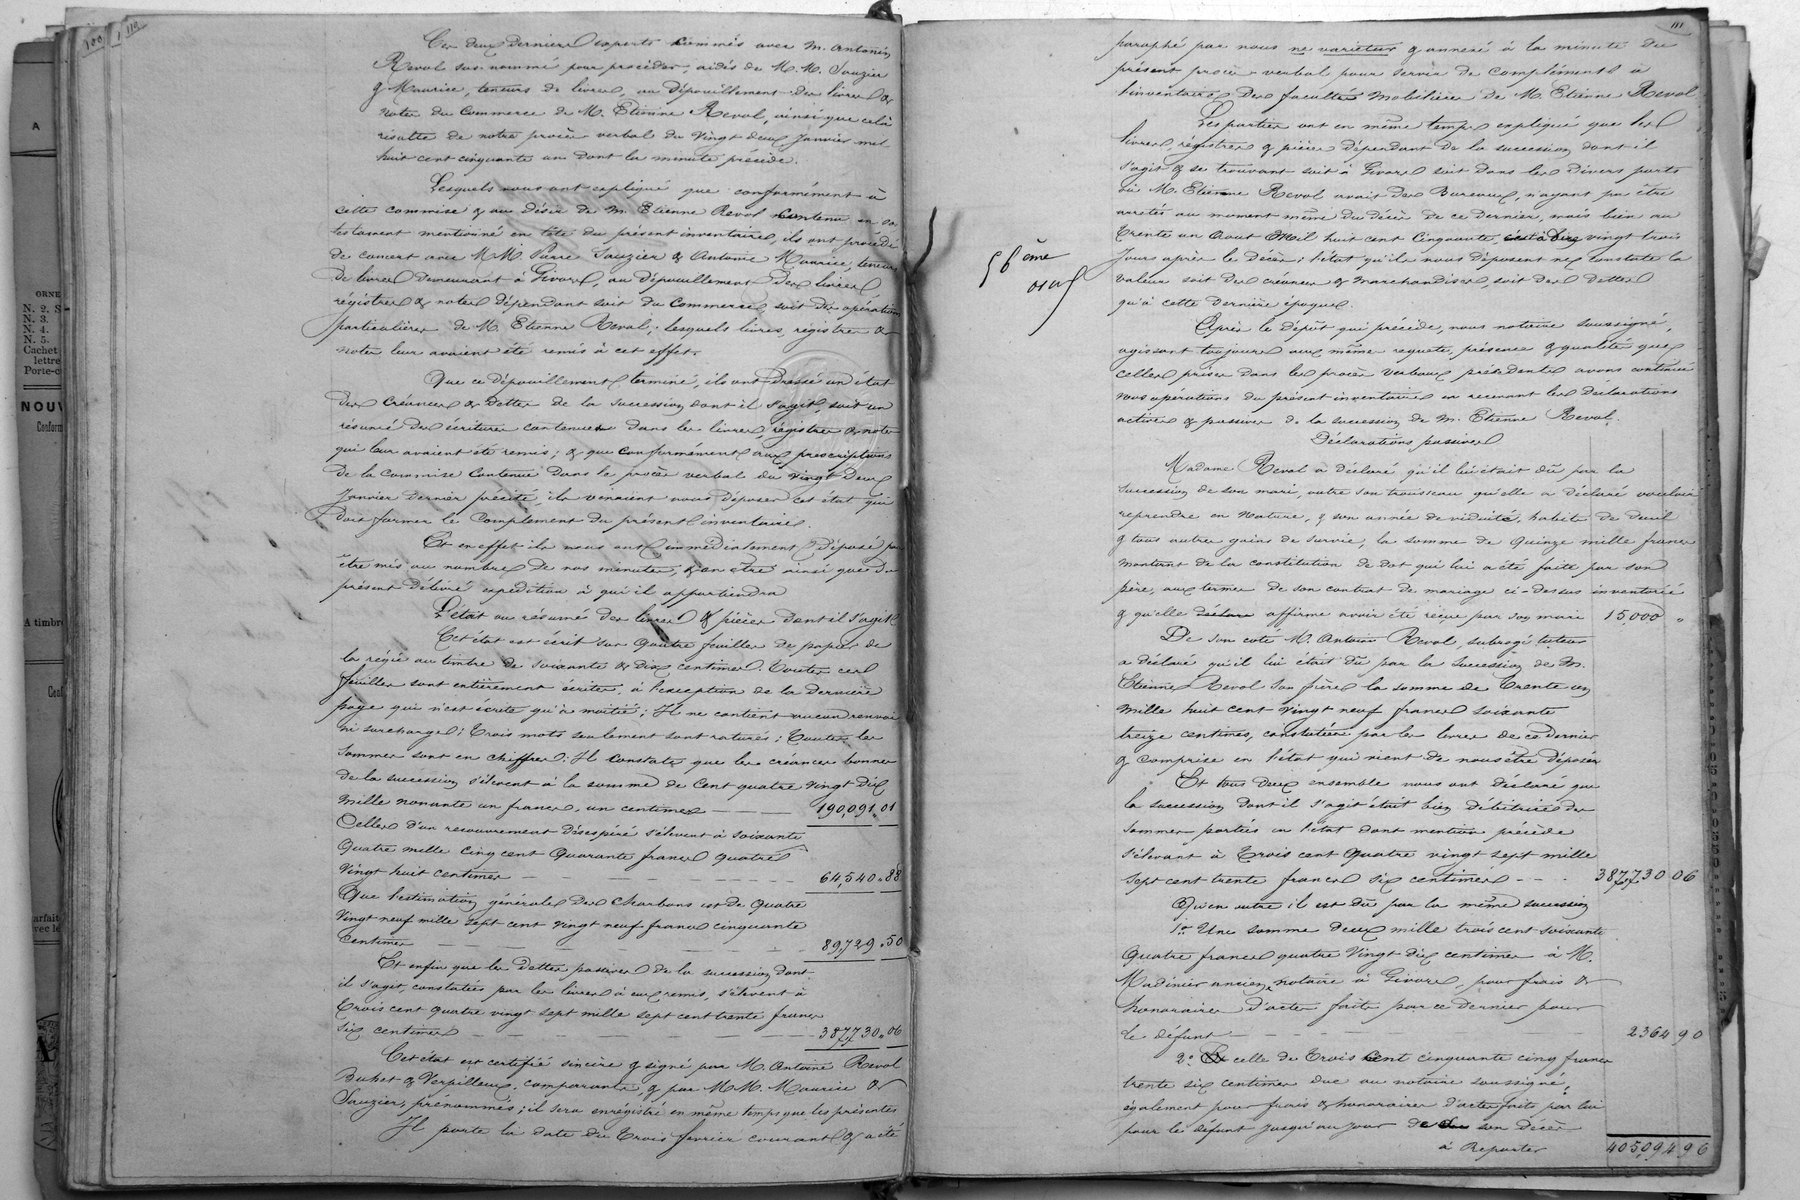 100
110
A
ORNE
N. 2. S
N. 3.
N. 4.
N. 5.
Cachet
lettre
Porte-c
NOUV
Conform
A timbre
Conf
arfait
vec le
Ces deux derniers experts nommés avec M. Antoine
Revol sus-nommé pour procéder, aidés de M.M. Sauzier
& Maurice, teneurs de livres, au dépouillement des livres &
notes du Commerce de M. Etienne Revol, ainsi que cela
résulte de notre procès verbal du vingt deux Janvier mil
huit cent cinquante un dont la minute précède.
Lesquels nous ont expliqué que conformément à
cette commise & au désir de M. Etienne Revol contenu en son
testament mentionné en tête du présent inventaire, ils ont procédé
de concert avec M.M. Pierre Sauzier & Antoine Maurice, teneurs
de livres demeurant à Givors, au dépouillement des livres
registres & notes dépendant soit du Commerce, soit des opérations
particulières de M. Etienne Revol; lesquels livres, registres &
notes leur avaient été remis à cet effet.
Que ce dépouillement terminé, ils ont dressé un état
des Créances & Dettes de la succession dont il s'agit, soit un
résumé des écritures contenues dans les livres, registres & notes
qui leur avaient été remis; & que conformément aux prescriptions
de la commise contenue dans le procès verbal du vingt deux
Janvier dernier précité, ils venaient nous déposer cet état qui
doit former le Complément du présent inventaire.
Et en effet ils nous ont immédiatement déposé pour
être mis au nombre de nos minutes, & en être ainsi que du
présent délivré expédition à qui il appartiendra
L'état ou résumé des livres & pièces dont il s'agit
Cet état est écrit sur quatre feuilles de papier de
la régie au timbre de soixante & dix centimes. Toutes ces
feuilles sont entièrement écrites, à l'exception de la dernière
page qui n'est écrite qu'à moitié; Il ne contient aucun renvoi
ni surcharge; Trois mots seulement sont raturés; Toutes les
sommes sont en chiffres; Il constate que les créances bonnes
de la succession s'élèvent à la somme de Cent quatre vingt dix
mille nonante un francs, un centimes 190,091.01
Celles d'un recouvrement désespéré s'élèvent à soixante
quatre mille cinq cent quarante francs quatre
vingt huit centimes 64,540.88
Que l'estimation générale des charbons est de quatre
vingt neuf mille sept cent vingt neuf francs cinquante
centimes 89,729.50
Et enfin que les Dettes passives de la succession dont
il s'agit, constatées par les livres à eux remis, s'élèvent à
Trois cent quatre vingt sept mille sept cent trente francs
six centimes 387,730.06
Cet état est certifié sincère & signé par M. Antoine Revol
Buhet & Verpilleux, comparants, & par M.M. Maurice &
Sauzier, prénommés; il sera enregistré en même temps que les présentes
Il porte la date du Trois février courant & a été
111
paraphé par nous ne varietur & annexé à la minute du
présent procès-verbal pour servir de complément à
l'inventaire des facultés mobilières de M. Etienne Revol
Les parties ont en même temps expliqué que les
livres, régistres & pièces dépendant de la succession dont il
s'agit & se trouvant soit à Givors soit dans les divers ports
où M. Etienne Revol avait des Bureaux, n'ayant pu être
arretés au moment même du décès de ce dernier, mais bien au
trente un Aout Mil huit cent cinquante, c'est à dire vingt trois
Jours après le décès; l'état qu'ils nous déposent ne constate la
valeur soit des créances & marchandises, soit des dettes
qu'à cette dernière époque.
56ème
Après le dépôt qui précède, nous notaire soussigné,
agissant toujours aux même requête, présence & qualités que
celles prises dans les procès verbaux précédents avons continué
nos opérations du présent inventaire en recevant les Déclarations
actives & passives de la succession de M. Etienne Revol.
Déclarations passives
Madame Revol a déclaré qu'il lui était dû par la
succession de son mari, outre son trousseau qu'elle a déclaré vouloir
reprendre en nature, & son année de viduité, habits de deuil
& tous autres gains de survie, la somme de quinze mille francs
montant de la constitution de dot qui lui a été faite par son
père, aux termes de son contrat de mariage ci-dessus inventorié
& qu'elle déclare affirme avoir été reçue par son mari 15,000 "
De son coté M. Antoine Revol, subrogé tuteur
a déclaré qu'il lui était dû par la succession de M.
Etienne Revol son frère la somme de Trente un
mille huit cent vingt neuf francs soixante
treize centimes, constatée par les livres de ce dernier
& comprise en l'état qui vient de nous être déposé
Et tous deux ensemble nous ont déclaré que
la succession dont il s'agit était bien débitrice des
sommes portées en l'état dont mention précède
s'élevant à Trois cent quatre vingt sept mille
sept cent trente francs six centimes 387,730 06
Qu'en outre il est dû par la même succession
1° Une somme deux mille trois cent soixante
quatre francs quatre vingt dix centimes à M.
Madinier ancien notaire à Givors, pour frais &
honoraires d'actes faits par ce dernier pour
le défunt 2364 90
2° Et celle de Trois Cent cinquante cinq francs
trente six centimes due au notaire soussigné,
également pour frais & honoraires d'actes faits par lui
pour le défunt jusqu'au jour de son décès
à Reporter 405,094 96